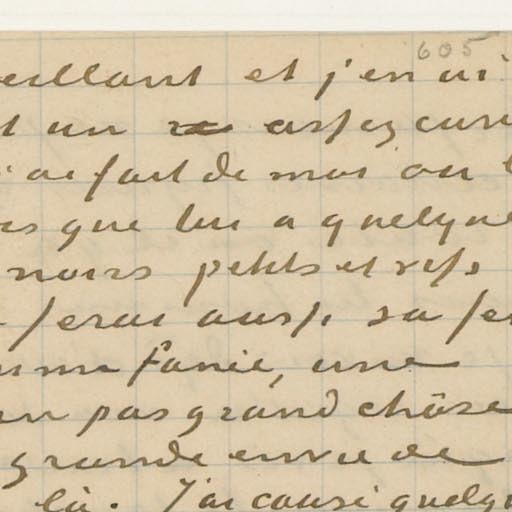 605
eillant et j'en ai
t un assez curi
ai fait de moi ou l
is que lui a quelque
noirs petits et vifs
ferai aussi sa fe
fanée, une
pas grand chôse
grande envie de
là. J'ai causé quelqu